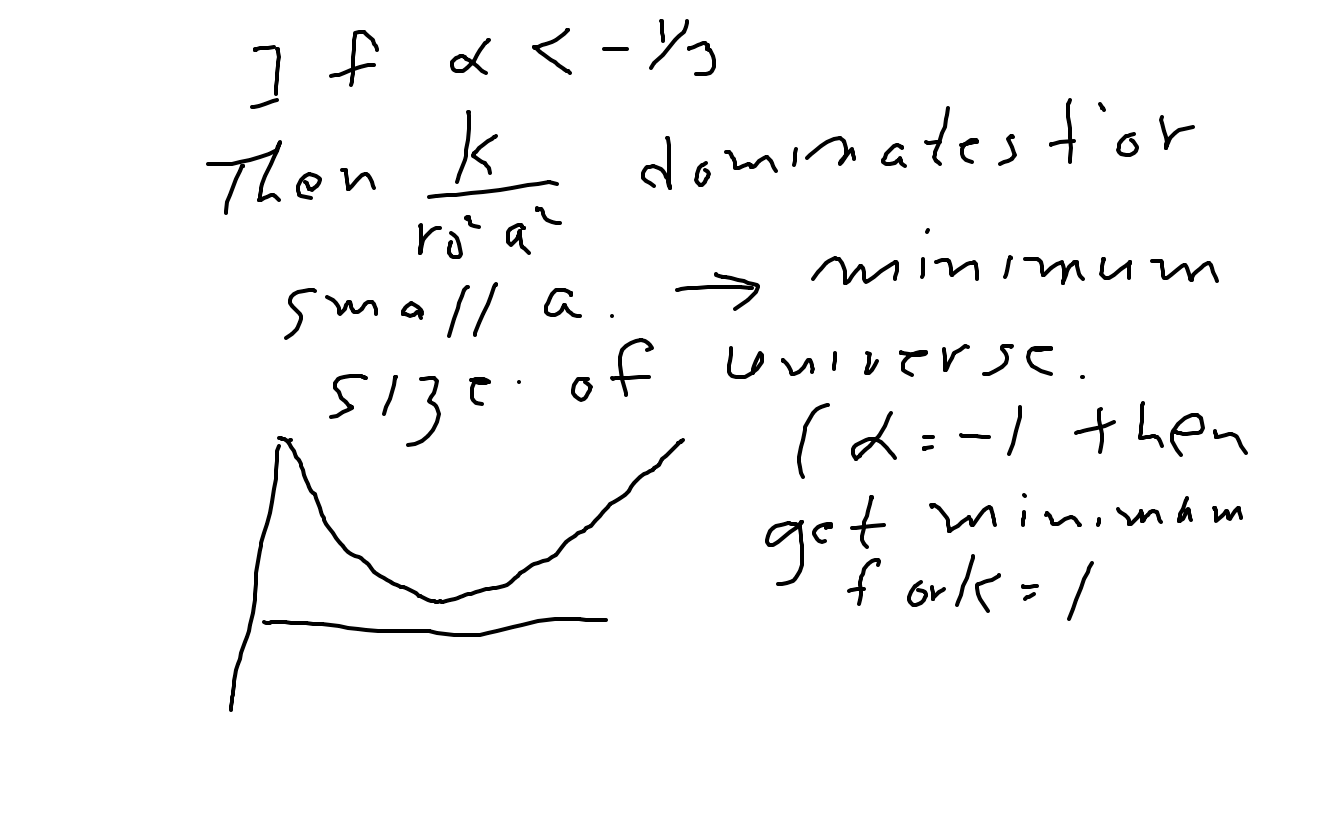 If α < -1/3
Then k/(r0² a²) dominates for
small a. → minimum
size of universe.
(α = -1 then
get minimum
for k = 1